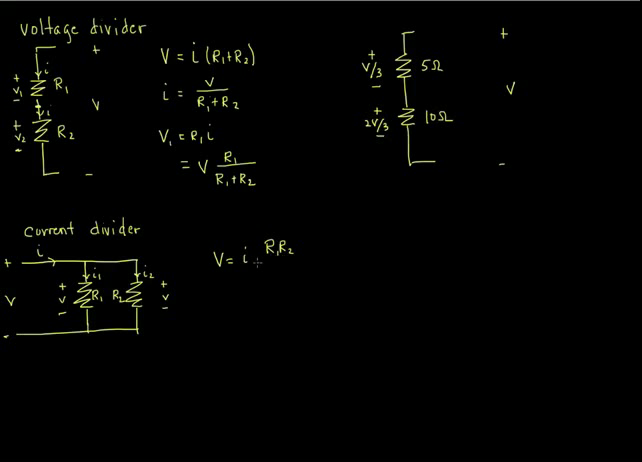 voltage divider
+
i
+
V₁
-
R₁
i
+
V₂
-
R₂
V
-
V = i (R₁+R₂)
i = V / R₁+R₂
V₁ = R₁ i
= V R₁ / R₁+R₂
+
V/3
-
5Ω
+
2V/3
-
10Ω
+
V
-
current divider
i
+
V
-
i₁
+
V
-
R₁
i₂
R₂
+
V
-
V = i R₁R₂